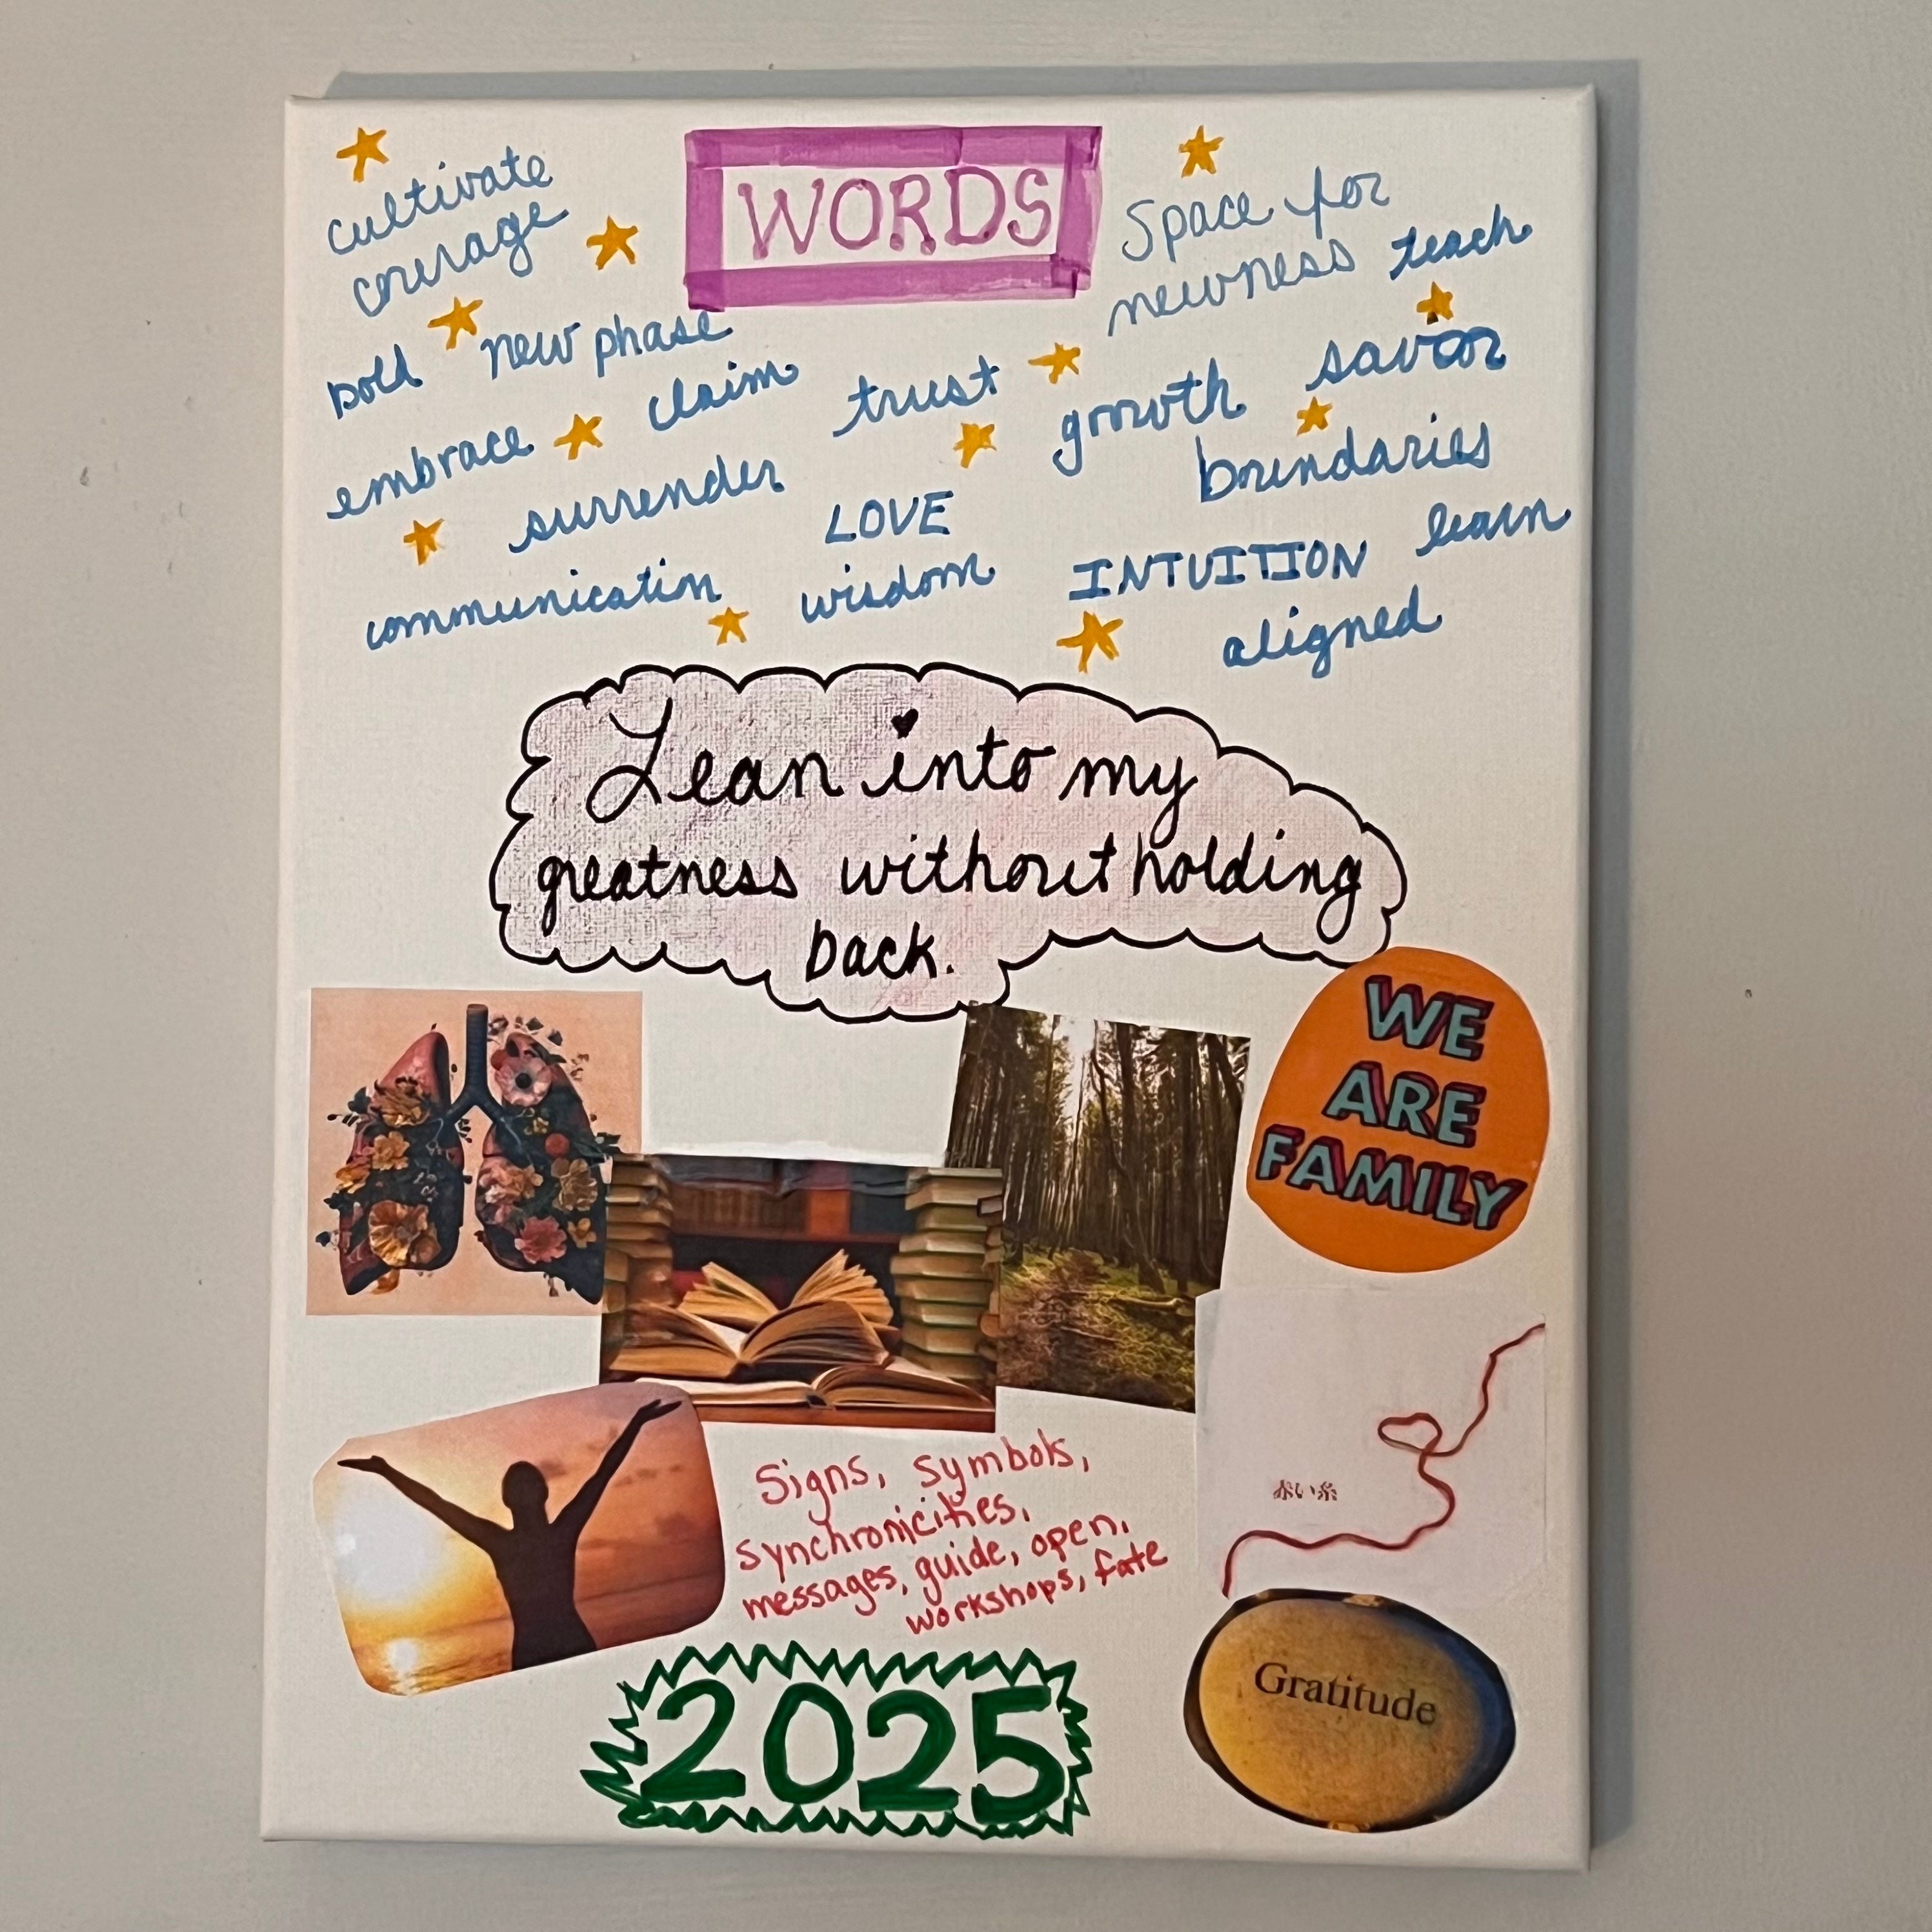 WORDS
cultivate
courage
Space for
newness teach
bold new phase
claim trust growth savor
embrace surrender LOVE boundaries
communication wisdom INTUITION learn
aligned
Lean into my
greatness without holding
back.
WE
ARE
FAMILY
Signs, symbols,
synchronicities,
messages, guide, open,
workshops, fate
Gratitude
2025